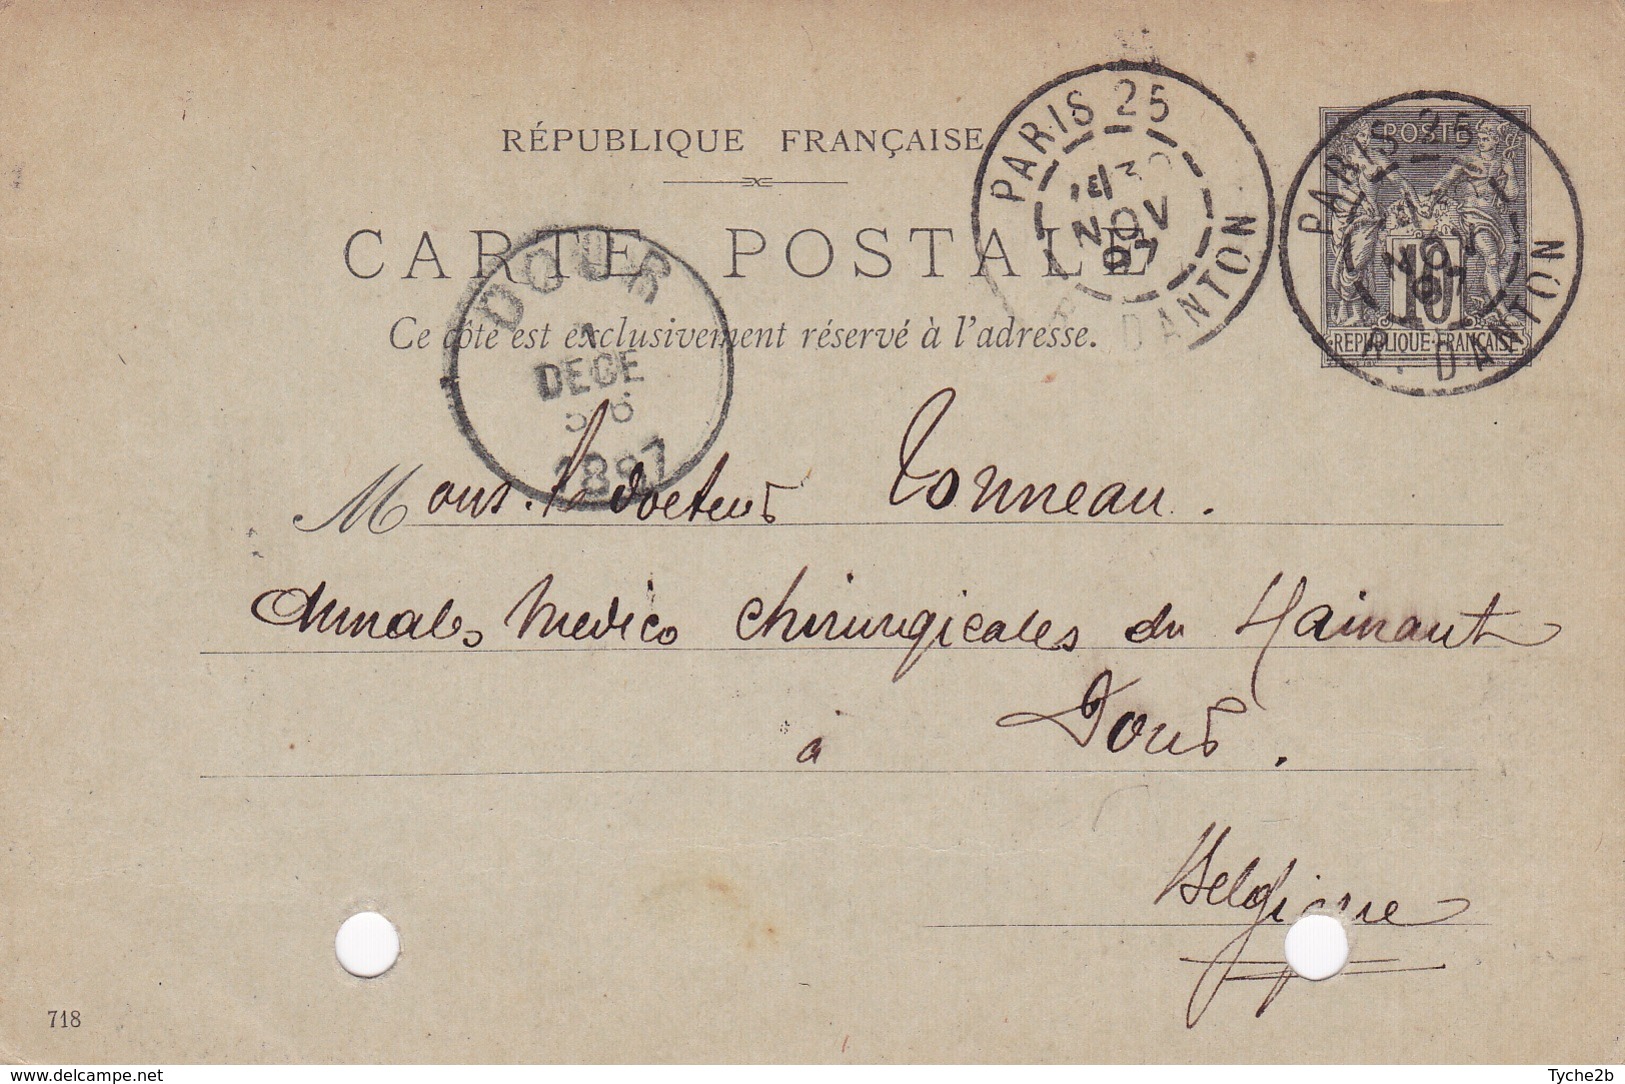 RÉPUBLIQUE FRANÇAISE
CARTE POSTALE
Ce côté est exclusivement réservé à l'adresse.
PARIS 25
30
NOV
97
R. DANTON
POSTE
10
REPUBLIQUE FRANÇAISE
PARIS 25
NOV
97
R. DANTON
DOUR
1
DECE
1897
Mons. le docteur Tonneau.
Annales medico chirurgicales du Hainaut
à Dour.
Belgique
718
www.delcampe.net
Tyche2b